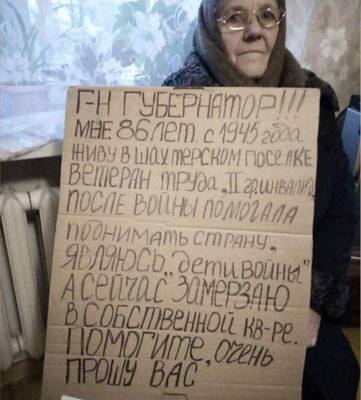 Г-Н ГУБЕРНАТОР!!!
МНЕ 86 ЛЕТ. С 1945 года
ЖИВУ В ШАХТЕРСКОМ ПОСЕЛКЕ
ВЕТЕРАН ТРУДА, II гр.инвалид.
ПОСЛЕ ВОЙНЫ ПОМОГАЛА
ПОДНИМАТЬ СТРАНУ.
ЯВЛЯЮСЬ „ДЕТИ ВОЙНЫ"
А СЕЙЧАС ЗАМЕРЗАЮ
В СОБСТВЕННОЙ КВ-РЕ.
ПОМОГИТЕ, ОЧЕНЬ
ПРОШУ ВАС